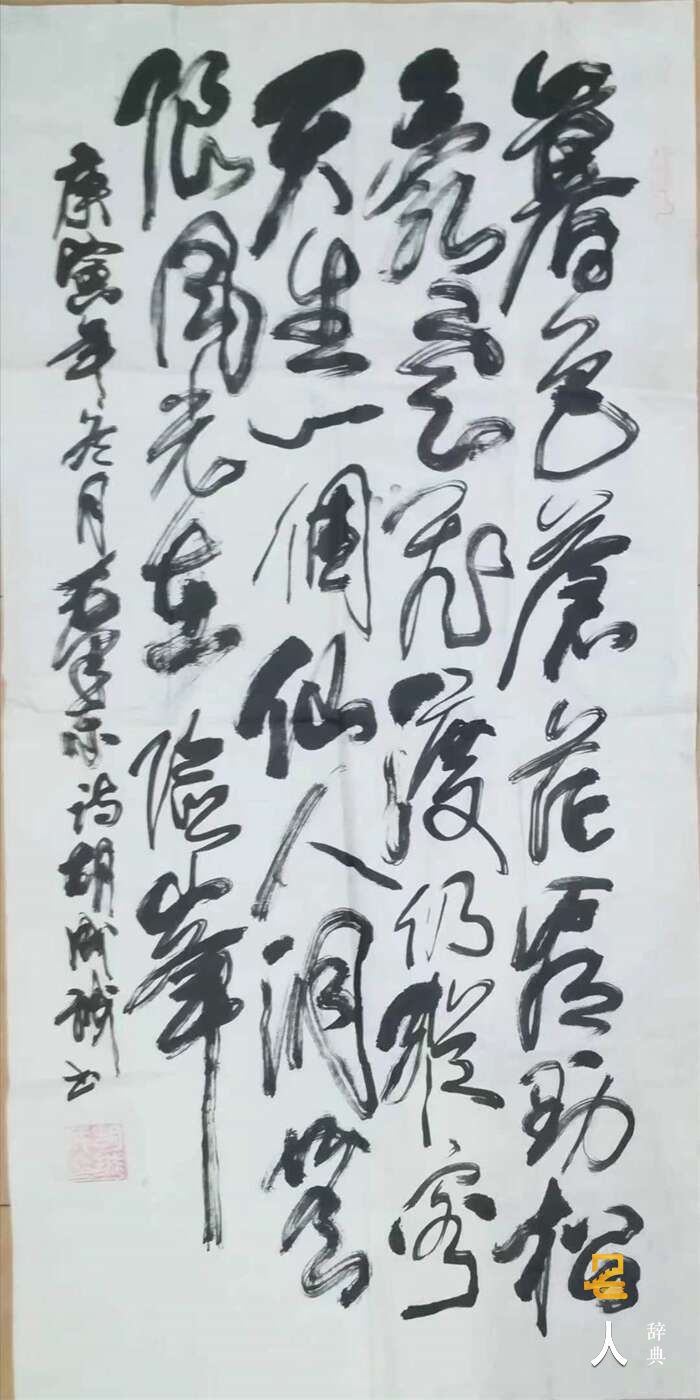 暮色蒼茫看劲松
亂雲飛渡仍從容
天生一個仙人洞無
限風光在險峯
庚寅年冬月毛澤东诗胡书
名人
辞典